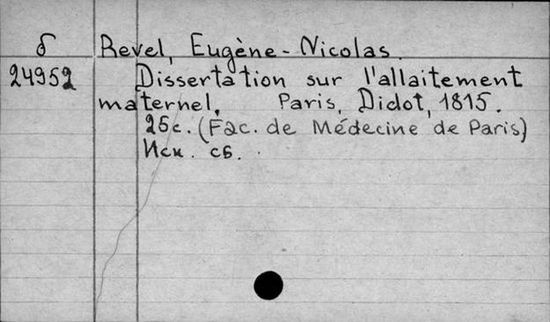 б Revel, Eugène-Nicolas.
24952 Dissertation sur l'allaitement
maternel. Paris, Didot, 1815.
25c. (Fac. de Médecine de Paris)
Иск. сб.